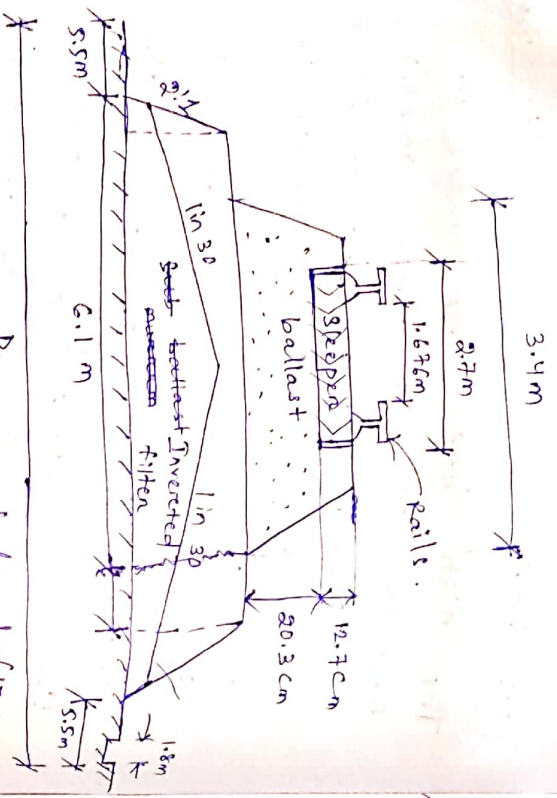 3.4m
2.7m
1.676m
Rails.
Sleeper
12.7cm
ballast
20.3cm
2:1
1in 30
1in 30
Invereted
filter
5.5m
6.1 m
5.5m
1.8m